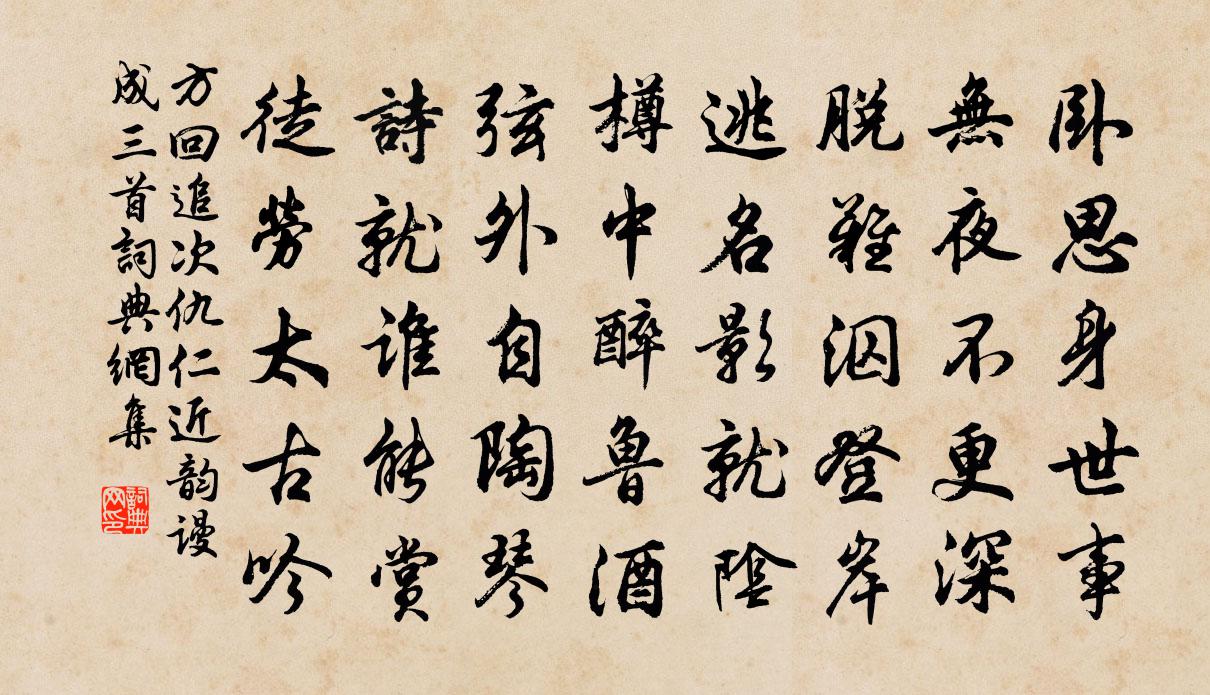 卧思身世事
無夜不更深
脱難泅登岸
逃名影就陰
樽中醉魯酒
弦外自陶琴
詩就誰能賞
徒勞太古吟
方回追次仇仁近韵謾
成三首詞典網集
詞典
网印